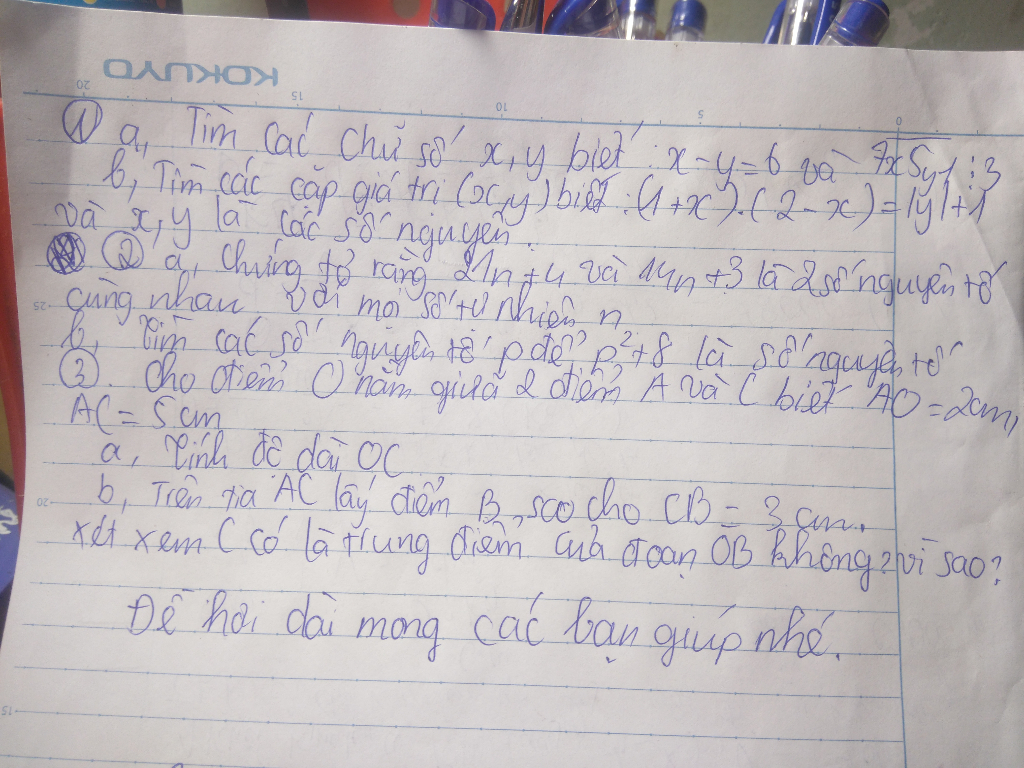 KOKUYO
20 15 10 5 0
① a, Tìm các chữ số x, y biết: x - y = 6 và 7x5y1 ⋮ 3
b, Tìm các cặp giá trị (x,y) biết: (1+x).(2-x) = |y|+1
và x, y là các số nguyên.
② a, Chứng tỏ rằng 21n+4 và 14n+3 là 2 số nguyên tố
25
cùng nhau với mọi số tự nhiên n
b, Tìm các số nguyên tố p để p²+8 là số nguyên tố
③. Cho điểm O nằm giữa 2 điểm A và C biết AO = 2cm,
AC = 5cm
a, Tính độ dài OC
20
b, Trên tia AC lấy điểm B, sao cho CB = 3 cm.
xét xem C có là trung điểm của đoạn OB không? vì sao?
Đề hơi dài mong các bạn giúp nhé.
15